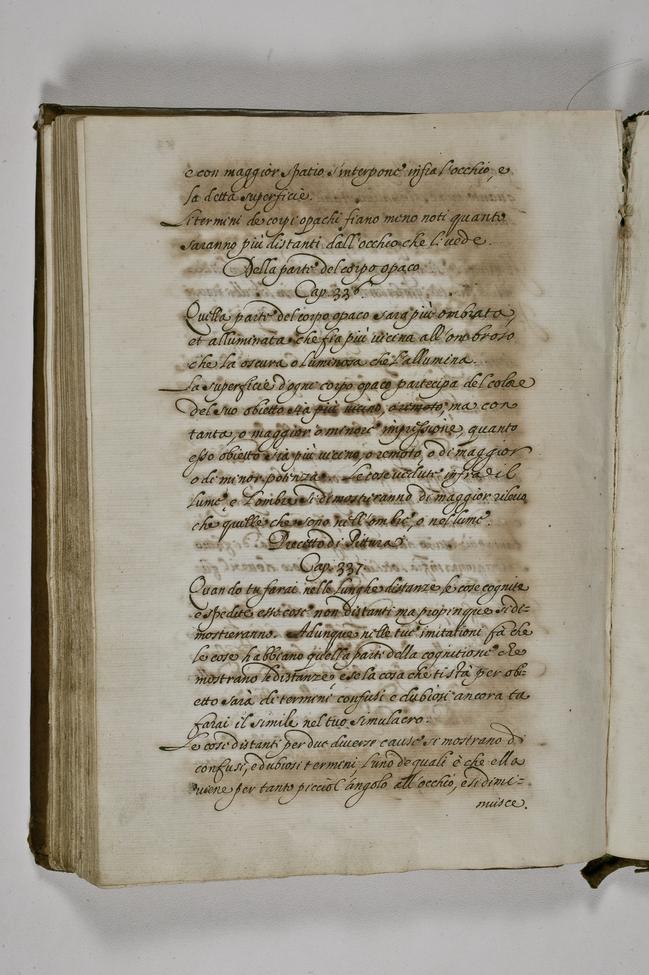 e con maggior spatio s'interpone infra l'occhio, e
la detta superficie.
Li termini de corpi opachi fiano meno noti quanto
saranno più distanti dall'occhio che li vede.
Della parte del corpo opaco
Cap. 336.
Quella parte del corpo opaco sarà più ombrata,
et alluminata che fia più vicina all'ombroso
che la oscura o luminosa che l'allumina.
La superficie d'ogni corpo opaco partecipa del colore
del suo obietto sia più vicino, o remoto, ma con
tanta, o maggior o minore impressione, quanto
esso obietto sia più vicino, o remoto, o di maggior
o di minor potenza. Le cose vedute infra il
lume, e l'ombre si dimostreranno di maggior rilievo
che quelle che sono nell'ombre, o nel lume.
Precetto di Pittura
Cap. 337
Quando tu farai nelle lunghe distanze le cose cognite
e spedite esse cose non distanti ma propinque si di-
mostreranno. Adunque nelle tue imitationi fà che
le cose habbiano quella parte della cognitione che
mostrano le distanze e se la cosa che ti stà per obi-
etto sarà di termini confusi e dubiosi ancora tu
farai il simile nel tuo simulacro.
Le cose distanti per due diverse cause si mostrano di
confusi, e dubiosi termini, l'uno de quali è che ella
viene per tanto picciol' angolo all'occhio, e si dimi-
nuisce.